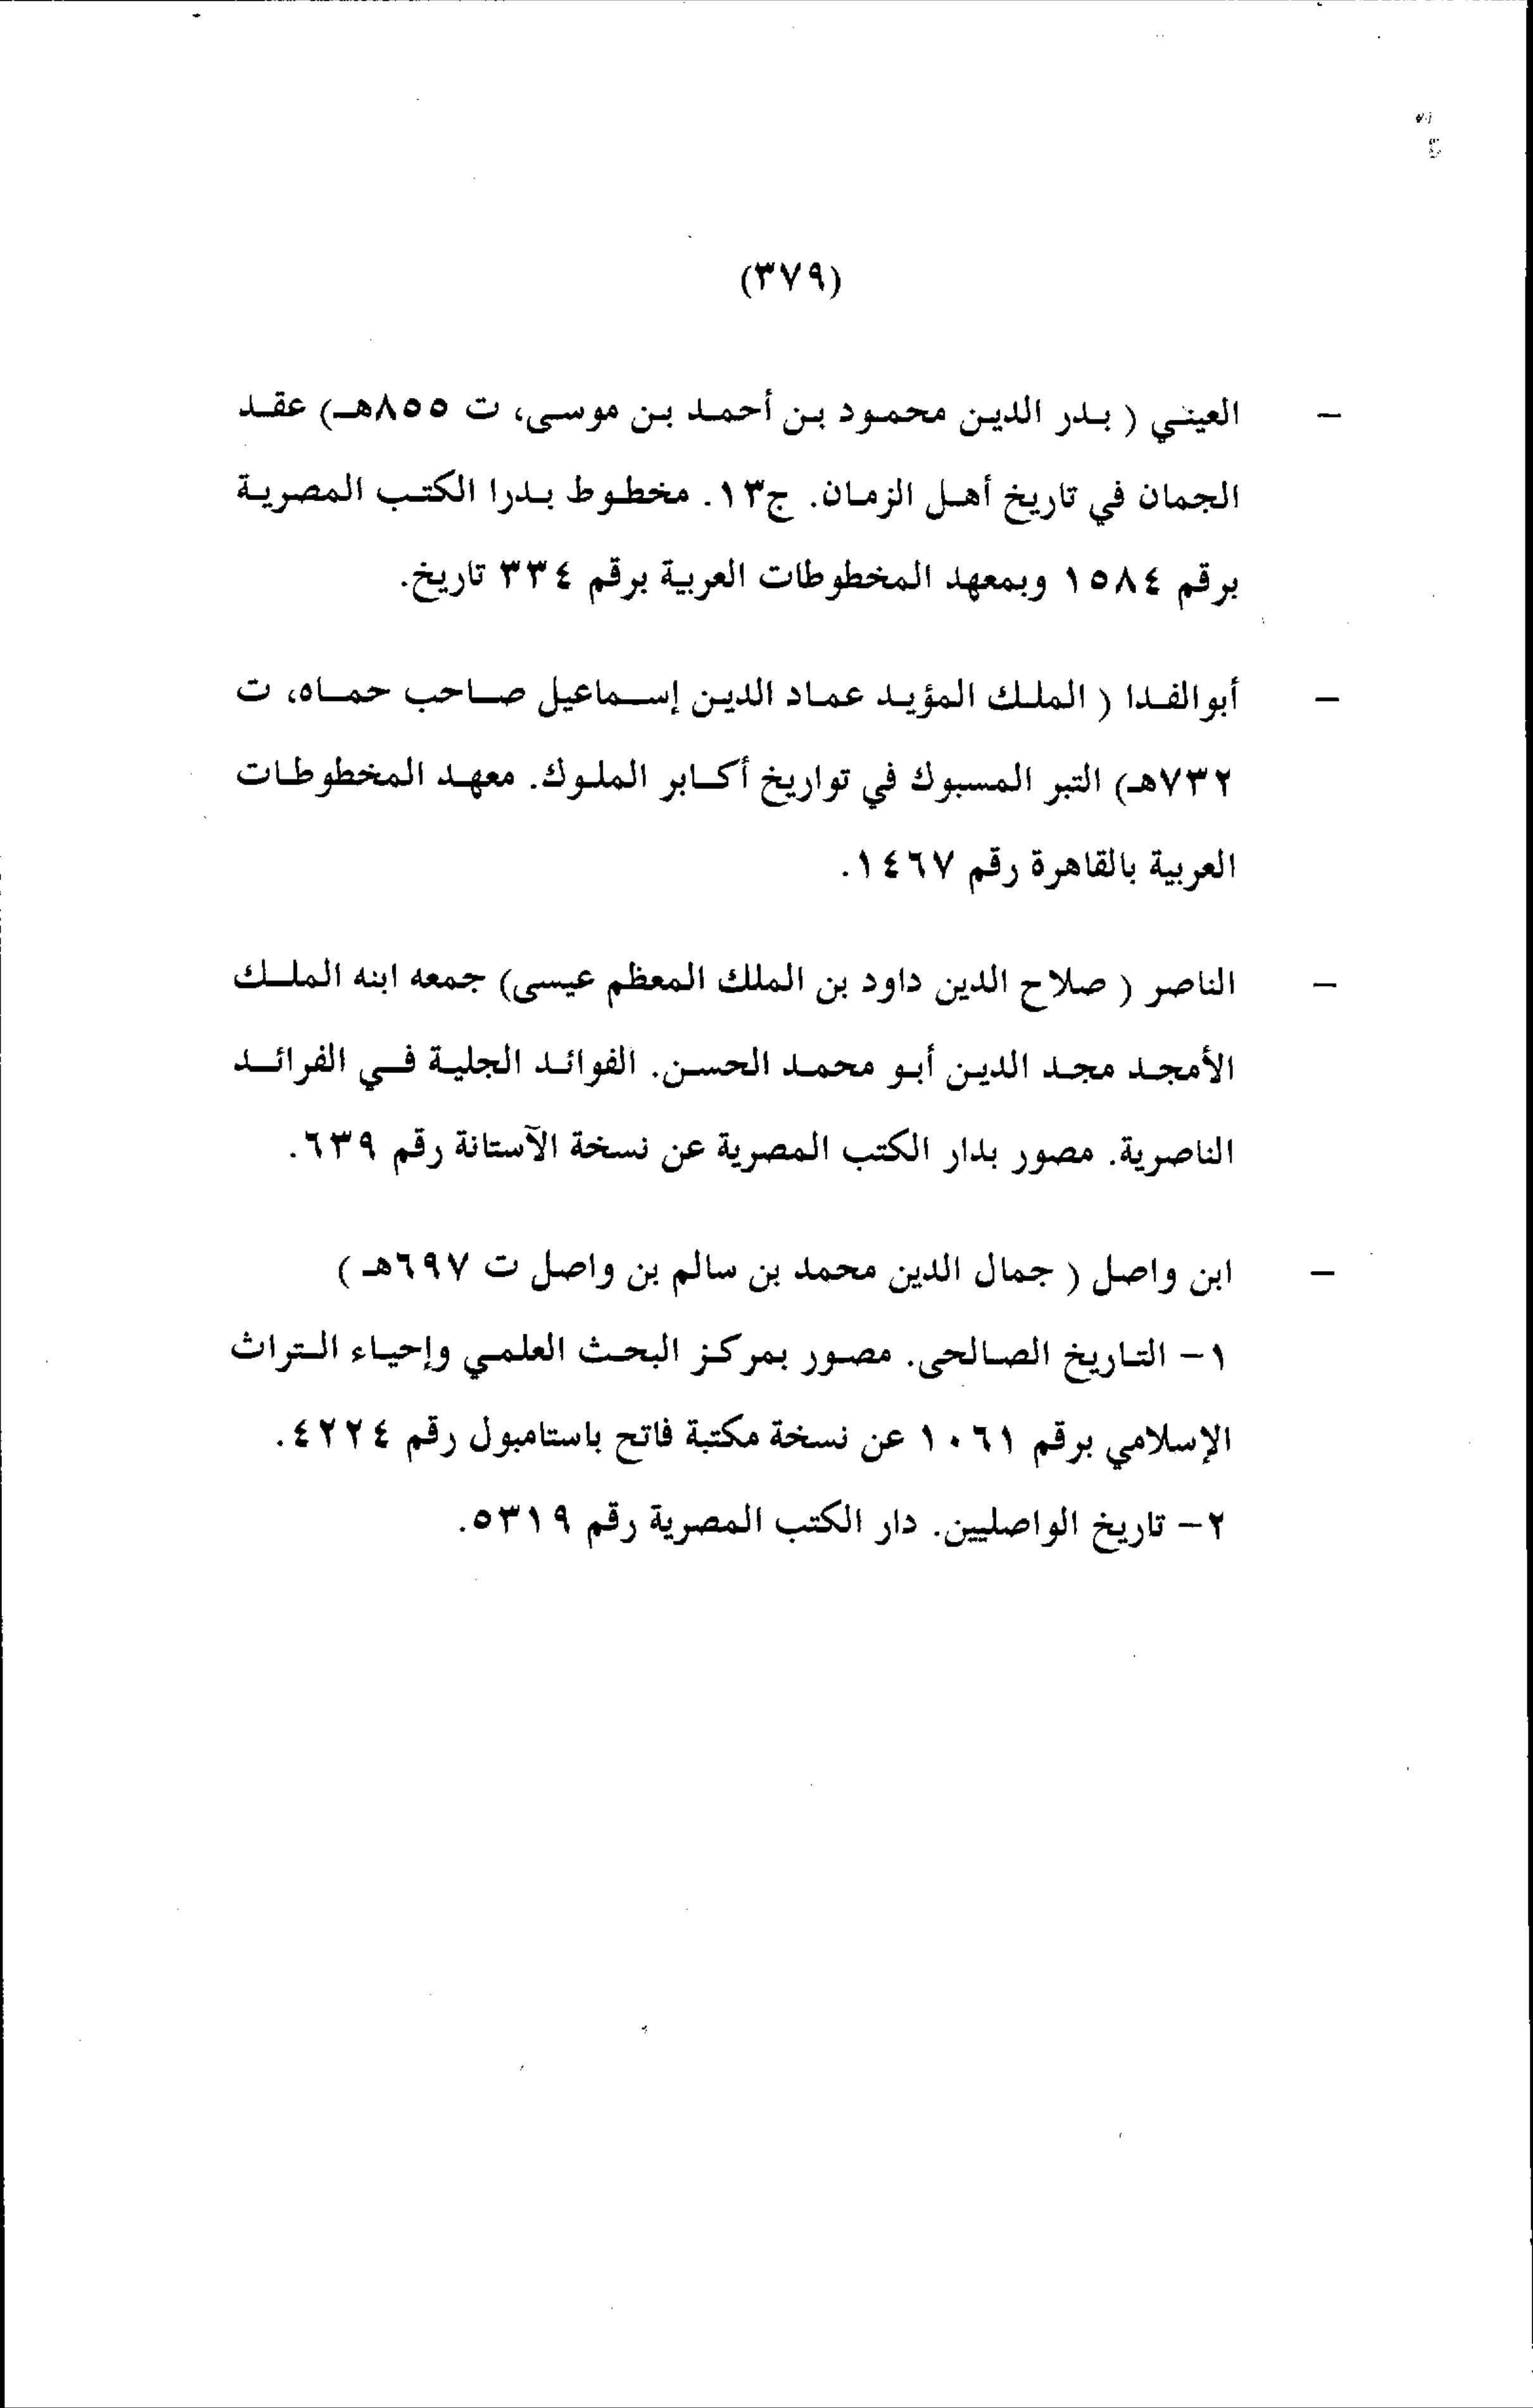 (٣٧٩)
- العيني ( بدر الدين محمود بن أحمد بن موسى، ت ٨٥٥هـ) عقد
الجمان في تاريخ أهل الزمان. ج١٣. مخطوط بدرا الكتب المصرية
برقم ١٥٨٤ وبمعهد المخطوطات العربية برقم ٣٣٤ تاريخ.
- أبوالفدا ( الملك المؤيد عماد الدين إسماعيل صاحب حماه، ت
٧٣٢هـ) التبر المسبوك في تواريخ أكابر الملوك. معهد المخطوطات
العربية بالقاهرة رقم ١٤٦٧.
- الناصر ( صلاح الدين داود بن الملك المعظم عيسى) جمعه ابنه الملك
الأمجد مجد الدين أبو محمد الحسن. الفوائد الجلية في الفرائد
الناصرية. مصور بدار الكتب المصرية عن نسخة الآستانة رقم ٦٣٩.
- ابن واصل ( جمال الدين محمد بن سالم بن واصل ت ٦٩٧هـ )
١- التاريخ الصالحى. مصور بمركز البحث العلمي وإحياء التراث
الإسلامي برقم ١٠٦١ عن نسخة مكتبة فاتح باستامبول رقم ٤٢٢٤.
٢- تاريخ الواصليين. دار الكتب المصرية رقم ٥٣١٩.